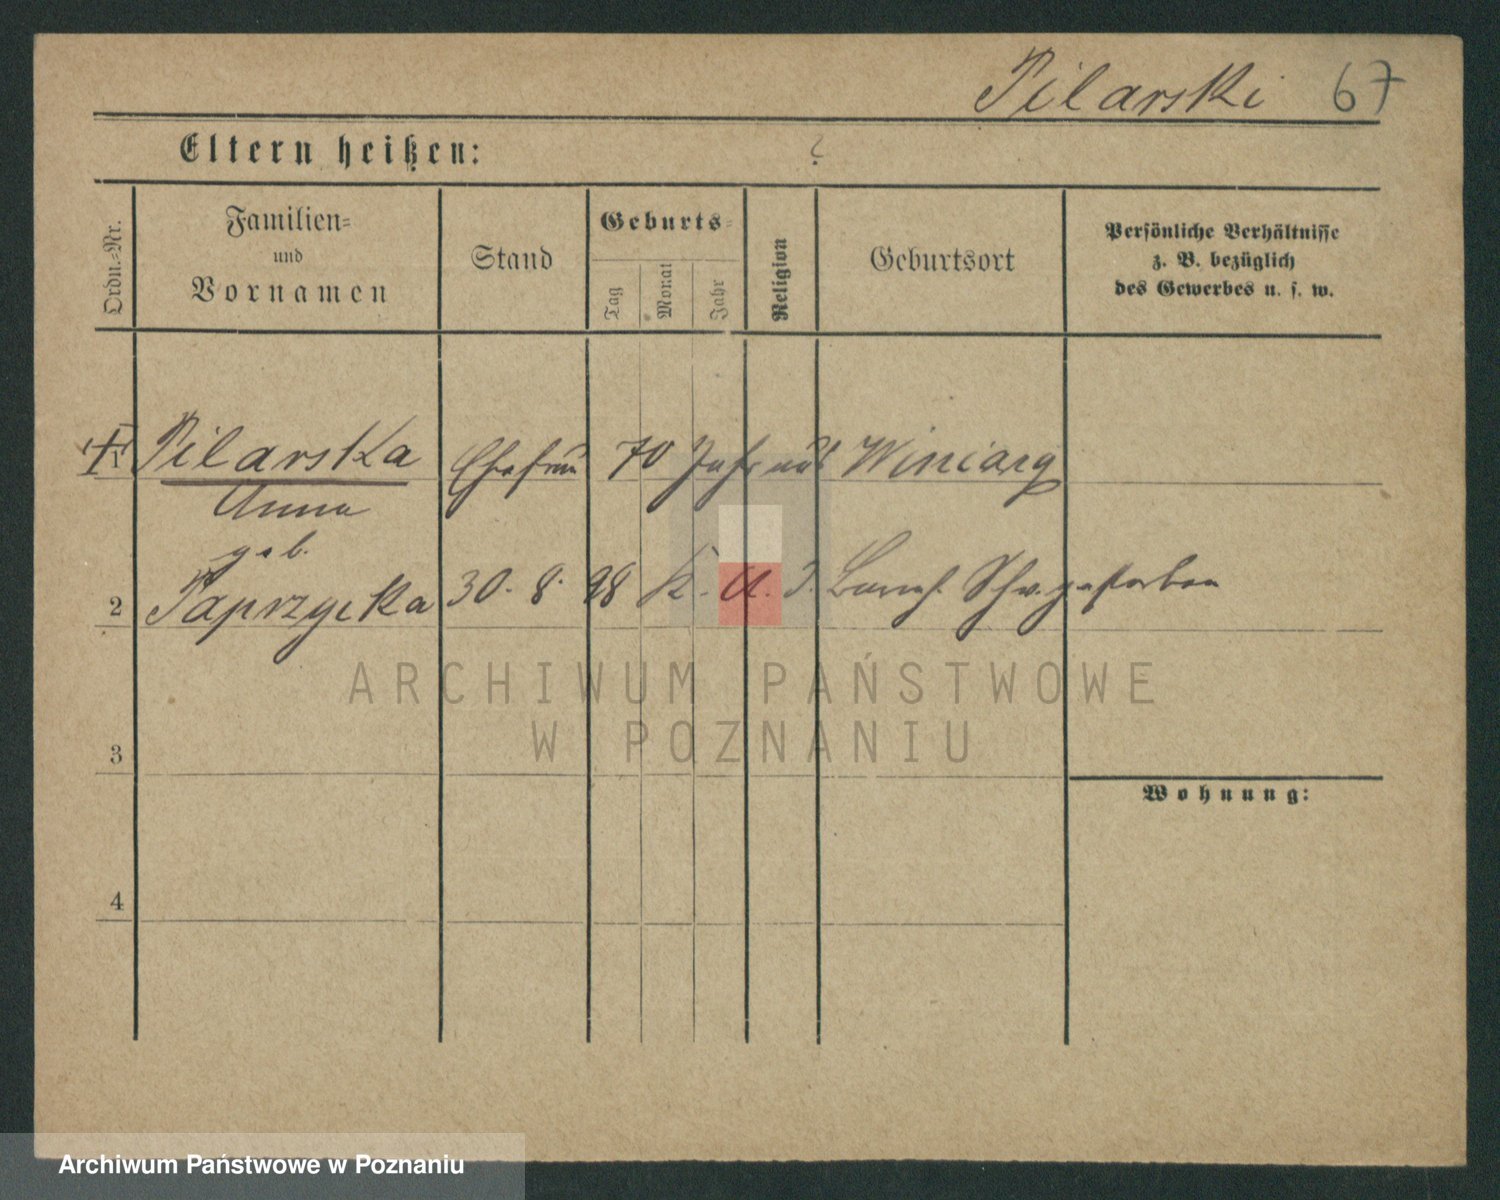 Pilarski 67
Eltern heißen: ?
Ordn.-Nr.
Familien-
und
Vornamen
Stand
Geburts-
Tag
Monat
Jahr
Religion
Geburtsort
Persönliche Verhältnisse
z. B. bezüglich
des Gewerbes u. s. w.
1 Pilarska Ehefrau 70 Jahr alt Winiary
Anna
geb.
2 Paprzycka 30. 8. 98 K. A. 3. gestorben
ARCHIWUM PAŃSTWOWE
W POZNANIU
3
Wohnung:
4
Archiwum Państwowe w Poznaniu